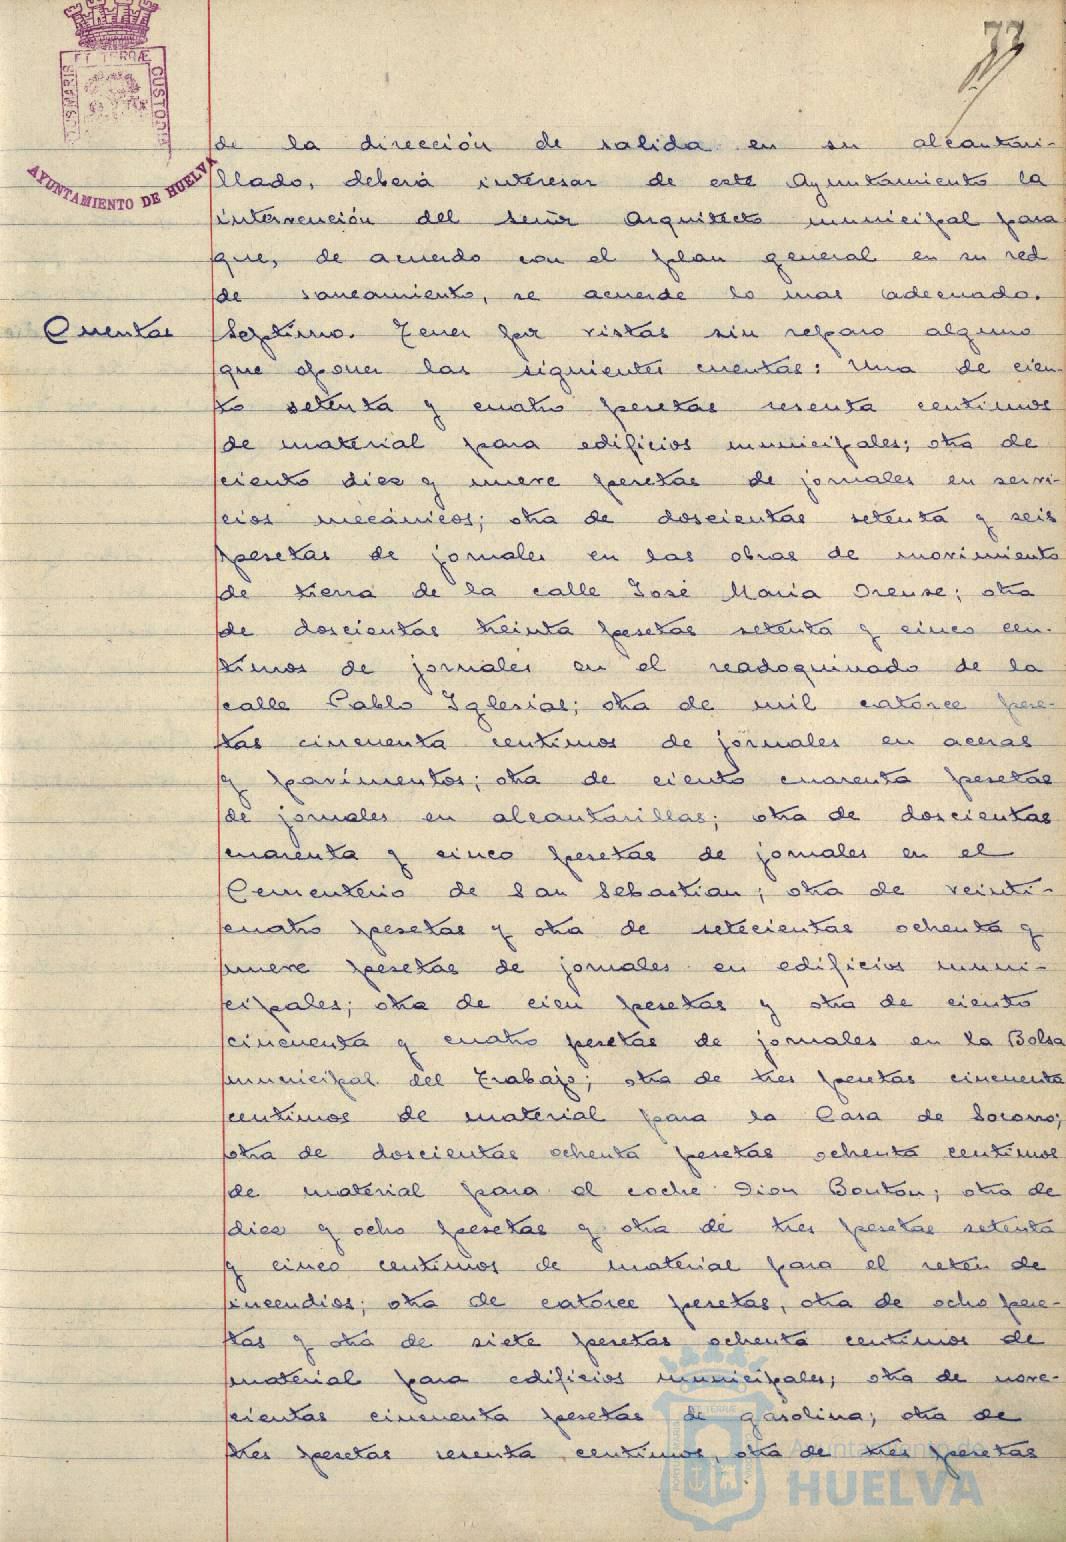 77
PORTUS MARIS ET TERRÆ CUSTODIA
AYUNTAMIENTO DE HUELVA
de la dirección de salida en su alcantari-
llado, deberá interesar de este Ayuntamiento la
intervención del señor Arquitecto municipal para
que, de acuerdo con el plan general en su red
de saneamiento, se acuerde lo mas adecuado.
Cuentas Septimo. Tener por vistas sin reparo alguno
que oponer las siguientes cuentas: Una de cien-
to setenta y cuatro pesetas sesenta centimos
de material para edificios municipales; otra de
ciento diez y nueve pesetas de jornales en servi-
cios mecánicos; otra de doscientas setenta y seis
pesetas de jornales en las obras de movimiento
de tierra de la calle José María Orense; otra
de doscientas treinta pesetas setenta y cinco cen-
timos de jornales en el readoquinado de la
calle Pablo Iglesias; otra de mil catorce pese-
tas cincuenta centimos de jornales en aceras
y pavimentos; otra de ciento cuarenta pesetas
de jornales en alcantarillas; otra de doscientas
cuarenta y cinco pesetas de jornales en el
Cementerio de San Sebastian; otra de veinti-
cuatro pesetas y otra de setecientas ochenta y
nueve pesetas de jornales en edificios muni-
cipales; otra de cien pesetas y otra de ciento
cincuenta y cuatro pesetas de jornales en la Bolsa
municipal del Trabajo; otra de tres pesetas cincuenta
centimos de material para la Casa de Socorro;
otra de doscientas ochenta pesetas ochenta centimos
de material para el coche Dion Bouton; otra de
diez y ocho pesetas y otra de tres pesetas setenta
y cinco centimos de material para el retén de
incendios; otra de catorce pesetas, otra de ocho pese-
tas y otra de siete pesetas ochenta centimos de
material para edificios municipales; otra de nove-
cientas cincuenta pesetas de gasolina; otra de
tres pesetas sesenta centimos, otra de tres pesetas
Ayuntamiento de
HUELVA